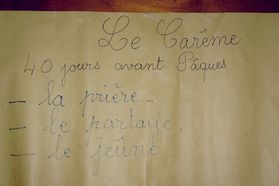 Le Carême
40 jours avant Pâques
- la prière.
- le partage.
- le jeûne